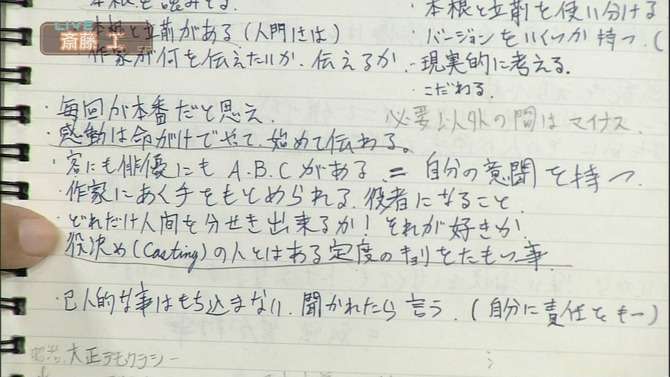 LIVE
斎藤 工
本根と立前がある(人間には)
作家が何を伝えたいか、伝えるか
・本根と立前を使い分ける
・バージョンをいくつか持つ.(
・現実的に考える.
・こだわる.
・毎回が本番だと思え.
必要以外の間はマイナス.
・感動は命がけでやって、始めて伝わる。
・客にも俳優にも A.B.Cがある = 自分の意聞を持つ.
・作家にあく手をもとめられる.役者になること.
・どれだけ人間を分せき出来るか! それが好きか
役決め(Casting)の人とはある定度のキョリをたもつ事.
・己人的な事はもち込まない.聞かれたら言う.(自分に責任をもー)
大正デモクラシー